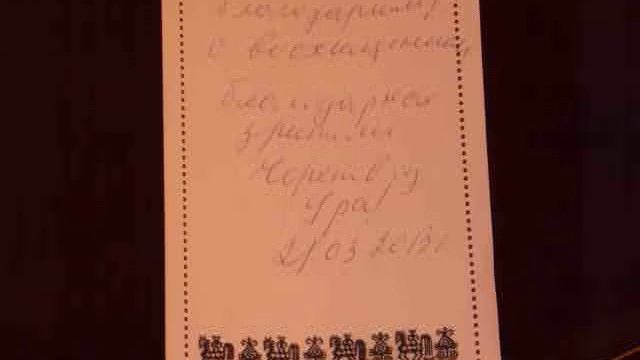 благодарим
с восхищением
благодарная
зрители
Ура!
21 03 2013г